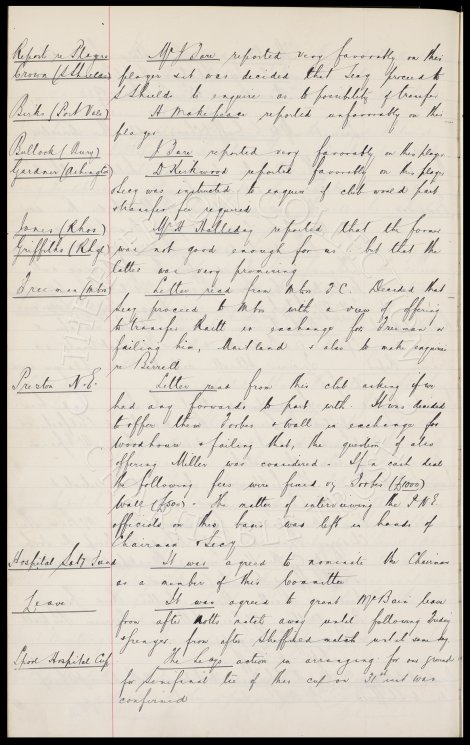 Reports re Players Mr J Dare reported very favorably on this
Crown (S Shields) player & it was decided that Secy proceed to
S Shields to enquire as to possibility of transfer
Birks (Port Vale) H Makepeace reported unfavorably on this
player
Bullock (Bury) J Dare reported very favorably on this player
Gardner (Ashington) D Kirkwood reported favorably on this player
& Secy was instructed to enquire if club would part
& transfer fee required
Jones (Rhos) Mr H Halliday reported that the former
Griffiths (Rhyl) was not good enough for us, but that the
latter was very promising
Freeman (Mbro) Letter read from Mbro F.C. Decided that
Secy proceed to Mbro with a view of offering
to transfer Raitt in exchange for Freeman or
failing him, Maitland & also to make enquiries
re Birrell
Preston N.E. Letter read from this club asking if we
had any forwards to part with. It was decided
to offer them Forbes & Wall in exchange for
Woodhouse & failing that, the question of also
offering Miller was considered. If a cash deal
the following fees were fixed viz Forbes (£1000)
Wall (£500). The matter of interviewing the P.N.E.
officials on this basis was left in hands of
Chairman & Secy
Hospital Saty Fund It was agreed to nominate the Chairman
as a member of this Committee
Leave It was agreed to grant McBain leave
from after Notts match away until following Friday
& from after Sheffield match until same day
Lpool Hospital Cup The Secys action in arranging for our ground
for semifinal tie of this cup on 31st inst was
confirmed